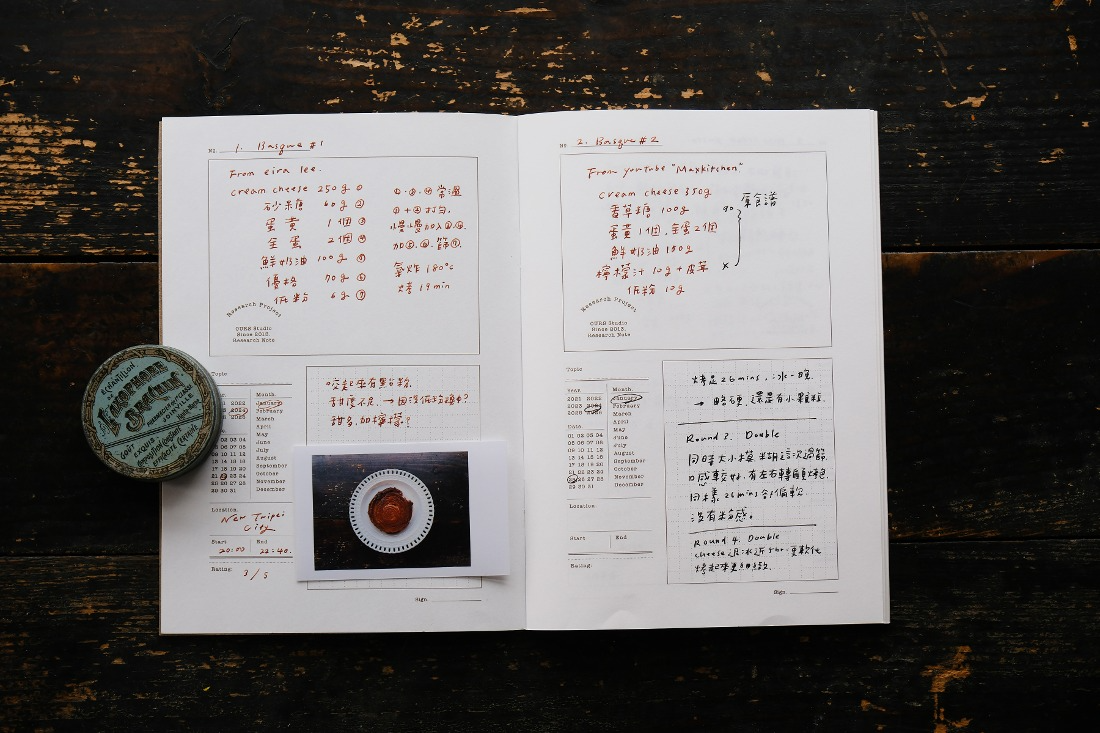 No. 1. Basque #1
From eira lee.
cream cheese 250g ①
砂糖 60g ②
蛋黃 1個 ③
全蛋 2個 ④
鮮奶油 100g ⑤
優格 70g ⑥
低粉 6g ⑦
①.②.④ 常溫
①+② 打勻,
慢慢加入③.④.
加⑤.⑥. 篩⑦.
氣炸 180°c
烤 19min
Research Project
OURS Studio
Since 2013.
Research Note
Topic
Year. Month.
2021 2022 January
2024 February
March
April
Date. May
01 02 03 04 June
05 06 07 08 July
09 10 11 12 August
13 14 15 16 September
17 18 19 20 October
21 22 23 24 November
25 26 27 28 December
29 30 31
Location.
New Taipei
City
Start End
20:00 22:40.
Rating: 3/5
吃起來有點粉
甜度不足, → 因沒低粉過篩?
甜多加檸檬?
Sign.
ÉCHANTILLON
LYCOPODE
SPECIAL
No 2. Basque #2
From youtube "Maxkitchen"
cream cheese 350g
香草糖 100g 90 原食譜
蛋黃1個.全蛋2個
鮮奶油 150g
檸檬汁 10g + 皮草 x
低粉 10g
Research Project
OURS Studio
Since 2013.
Research Note
Topic
Year Month.
2021 2022 January
2023 2024 February
2025 2026 March
April
Date. May
01 02 03 04 June
05 06 07 08 July
09 10 11 12 August
13 14 15 16 September
17 18 19 20 October
21 22 23 24 November
25 26 27 28 December
29 30 31
Location
Start End
Rating:
烤足 26 mins. 冰一晚.
→ 略硬,還是有小顆粒.
Round 2. Double
同時大小模 麵糊這次過篩
口感較好.有左右轉偏烤色
同樣 26mins 卻偏軟
沒有粉感。
Round 4. Double
cheese退冰近5hr.更軟化
烤起來更細緻.
Sign.